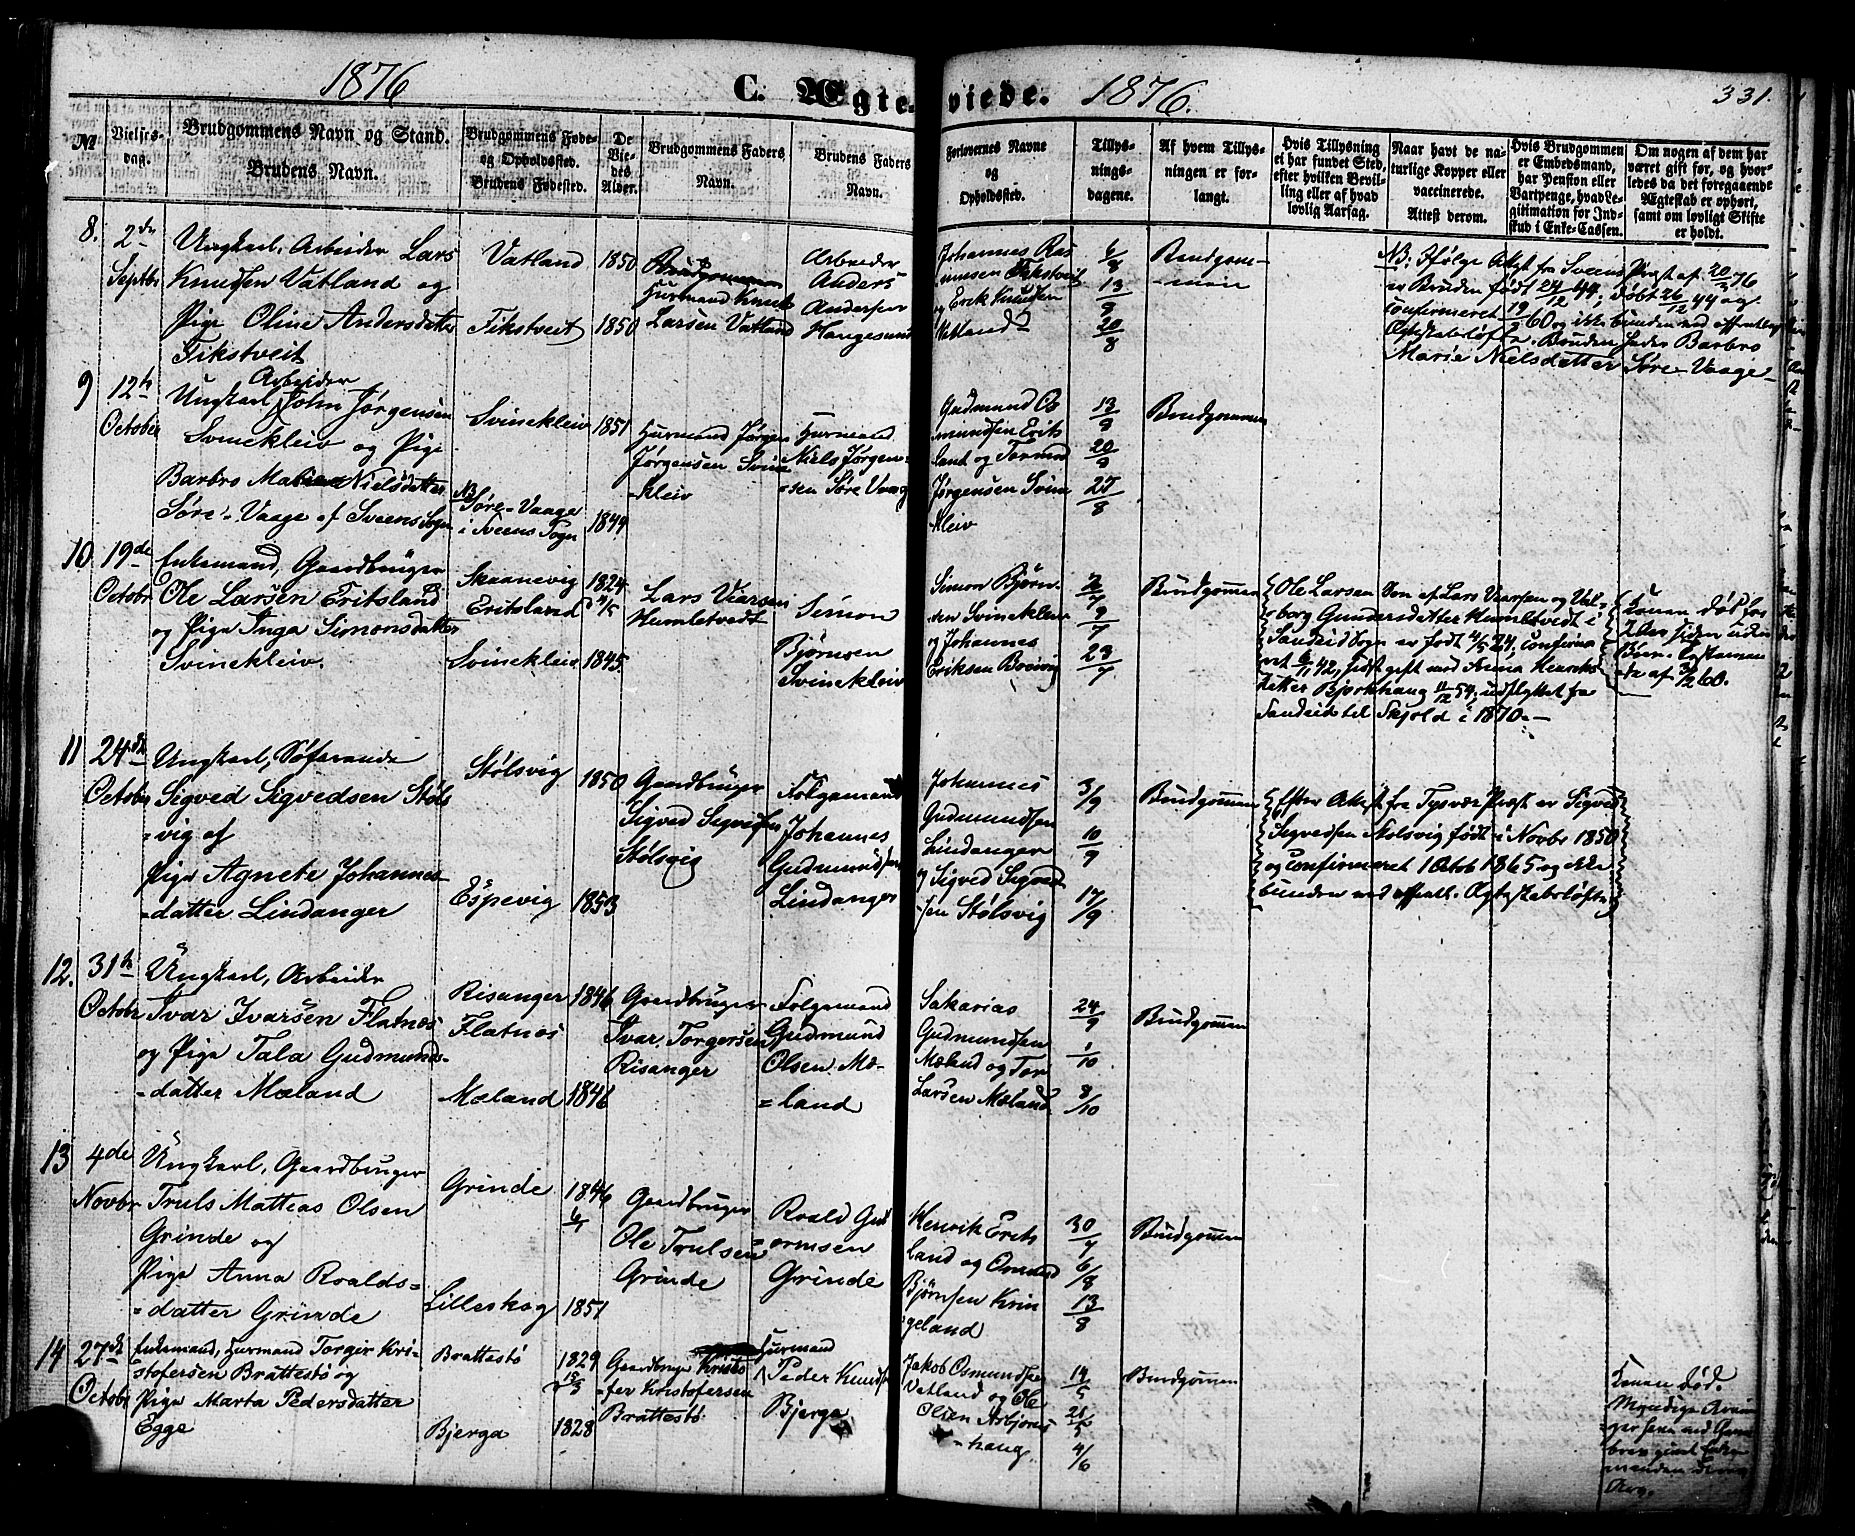 1876
C. Ægte-
viede.
1876.
331.
№
Vielses-
dag.
Brudgommens Navn og Stand.
Brudens Navn.
Brudgommens Føde-
og Opholdssted.
Brudens Fødested.
De
Vie-
des
Alder.
Brudgommens Faders
Navn.
Brudens Faders
Navn.
Forlovernes Navne
og
Opholdssted.
Tillys-
nings-
dagene.
Af hvem Tillys-
ningen er for-
langt.
Hvis Tillysning
ei har fundet Sted,
efter hvilken Bevil-
ling eller af hvad
lovlig Aarsag.
Naar havt de na-
turlige Kopper eller
vaccinerede.
Attest derom.
Hvis Brudgommen
er Embedsmand,
har Pension eller
Vartpenge, hvad Le-
gitimation for Ind-
skud i Enke-Cassen.
Om nogen af dem har
været gift før, og hvor-
ledes da det foregaaende
Ægteskab er ophørt,
samt om lovligt Skifte
er holdt.
8.
2de
Septbr
Ungkarl, Arbeider Lars
Knudsen Vatland og
Pige Oline Andersdatter
Fikstveit
Vatland
Fikstveit
1850
1850
Brudgommen
Huusmand Knut
Larsen Vatland
Arbeider
Anders
Andersen
Haugesund
Johannes Ras
musen Fikstveit
og Erik Knudsen
Vatland
6/8
13/8
20/8
Brudgom-
men
NB: Ifølge Attest fra Sveens Præst af 20/9 76
er Bruden født 24/12 44, døbt 26/12 44 og
confirmeret 19/ 60 og ikke bunden ved offentligt
Ægteskabsløfte. Bruden heder Barbro
Marie Nielsdatter Søre-Vaage
9
12te
October
Arbeider
Ungkarl John Jørgensen
Svinekleiv og Pige
Barbro Nielsdatter
Søre-Vaage af Sveens Sogn
Svinekleiv
NB
Søre-Vaage
i Sveens Sogn
1851
1844
Huusmand Jørgen
Jørgensen Svine
-kleiv
Huusmand
Niels Jørgen-
sen Søre Vaage
Gudmund Os
mundsen Erits
land og Tormod
Jørgensen Svine
kleiv
13/8
20/8
27/8
Brudgommen
10
19de
Octobr
Enkemand, Gaardbruger
Ole Larsen Eritsland
og Pige Inga Simonsdatter
Svinekleiv.
Skaanevig
Eritsland
Svinekleiv
1824
4/5
1845.
Lars Viarsen
Humletvedt
Simon
Bjørnsen
Svinekleiv
Simon Bjørn-
sen Svinekleiv
og Johannes
Eriksen Breivig
2/7
9/7
23/7
Brudgommen
Ole Larsen Søn af Lars Viarsen og Val-
borg Gundersdatter Humletvedt i
Sandeid Sogn er født 4/5 24, confirme
ret 6/ 42, sidst gift med Anna Henriks
datter Bjørkhaug 11/12 54, udflyttet fra
Sandeid til Skjold i 1870.—
Konen død for
siden uden
Børn. Testamen
te af 60.
11
24de
Octobr
Ungkarl, Søfarende
Sigved Sigvedsen Støls
-vig af
Pige Agnete Johannes-
-datter Lindanger
Stølsvig
Espevig
1850
1853
Gaardbruger
Sigved Sigvedsen
Stølsvig
Folgemand
Johannes
Gudmundsen
Lindanger
Johannes
Gudmundsen
Lindanger
og Sigved Sigved
-sen Stølsvig
3/9
10/9
17/9
Brudgommen
Efter Attest fra Tysvær Præst er Sigved
Sigvedsen Stølsvig født i Novbr 1850
og confirmeret 1 Octob 1865 og ikke
bunden ved offentl. Ægteskabsløfte
12.
31te
Octobr
Ungkarl, Arbeider
Ivar Ivarsen Flatnes
og Pige Tala Gudmunds-
-datter Mæland
Risanger
Flatnæs
Mæland
1846
1846
Gaardbruger
Ivar Torgersen
Risanger
Folgemand
Gudmund
Olsen Mæ-
=land
Sakarias
Gudmundsen
Mæland og Tor
Larsen Mæland
24/9
1/10
8/10
Brudgommen
13
4de
Novbr
Ungkarl, Gaardbruger
Truls Mattias Olsen
Grinde og
Pige Anna Roalds-
-datter Grinde
Grinde
Lilleskog
1846
1851
Gaardbruger
Ole Trulsen
Grinde
Roald Gut
=ormsen
Grinde
Henrik Erits
land og Osmund
Bjørnsen Krin
geland
30/7
6/8
13/8
Brudgommen
14
27de
Octobr
Enkemand, Huusmand Torgir Kri-
stofersen Brattestø og
Pige Marta Pedersdatter
Egge
Brattestø
Bjerga
1829
1828
Gaardbruger Kristo
-fer Kristofersen
Brattestø.
Huusmand
Peder Knudsen
Bjerga
Jakob Osmundsen
Vatland og Ole
Olsen Asbjørns
-haug
14/5
21/5
4/6
Brudgommen
Konen død.
Myndige Arvin
ger